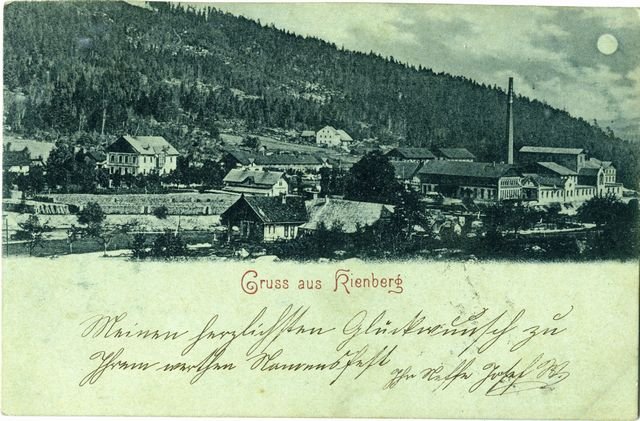 Gruss aus Kienberg
Meinen herzlichsten Glückwunsch zu
Ihrem werthen Namensfest
Ihr Neffe Josef W